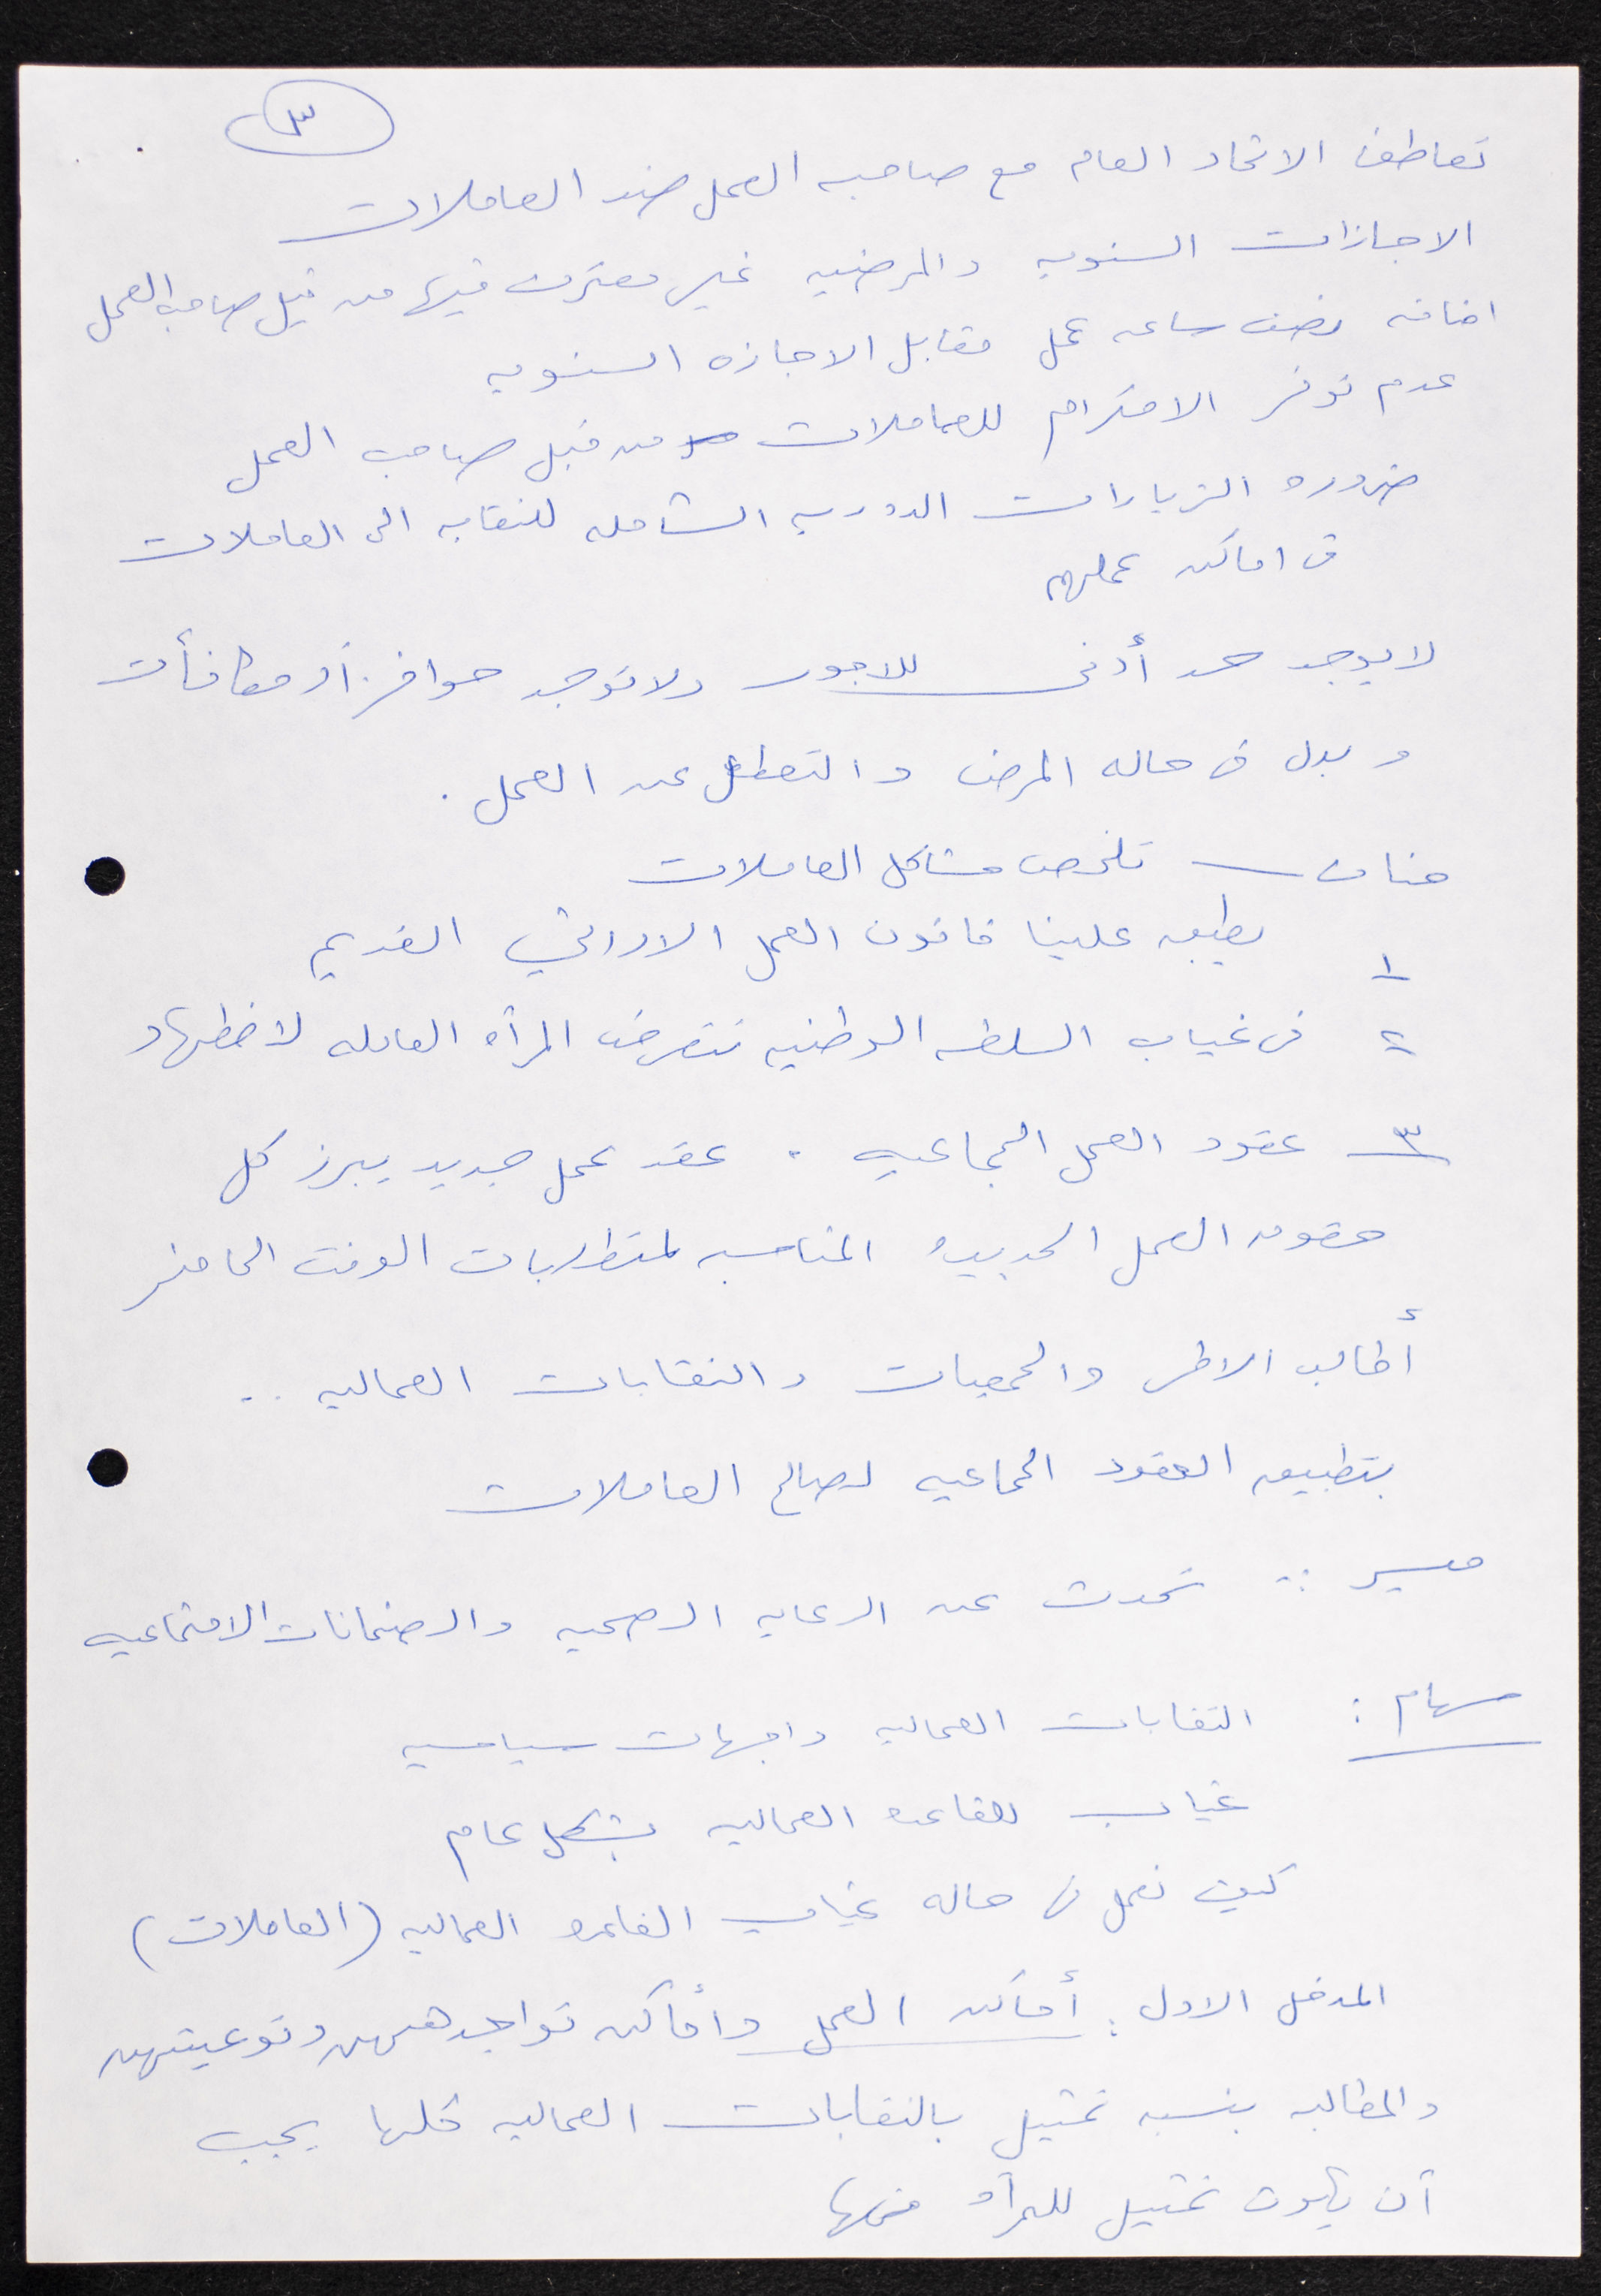 ٣
تعاطف الاتحاد العام مع صاحب العمل ضد العاملات
الاجازات السنويه والمرضيه غير معترف فيها من قبل صاحب العمل
اضافه نصف ساعه عمل مقابل الاجازه السنويه
عدم توفر الاحترام للعاملات من قبل صاحب العمل
ضروره الزيارات الدوريه الشامله للنقابه الى العاملات
في اماكن عملهم
لا يوجد حد أدنى للاجور ولا توجد حوافز أو مكافأت
و بدل في حاله المرض والتعطل عن العمل .
حنان تلخص مشاكل العاملات
١ يطبق علينا قانون العمل الاردني القديم
٢ في غياب السلطه الوطنيه تتعرض المرأه العامله لاضطهاد
٣ عقود العمل الجماعيه . عقد عمل جديد يبرز كل
حقوق العمل الجديده المناسبه لمتطلبات الوقت الحاضر
أطالب الاطر والجمعيات والنقابات العماليه ..
بتطبيق العقود الجماعيه لصالح العاملات
ميسر :: تحدثت عن الرعايه الصحيه والضمانات الاجتماعيه
سهام : النقابات العماليه واجهات سياسيه
غياب للقاعده العماليه بشكل عام
كيف نعمل في حاله غياب القاعده العماليه (العاملات)
المدخل الاول : أماكن العمل وأماكن تواجدهن وتوعيتهن
والمطالبه بنسبه تمثيل بالنقابات العماليه كلها يجب
أن يكون تمثيل للمرأه فيها